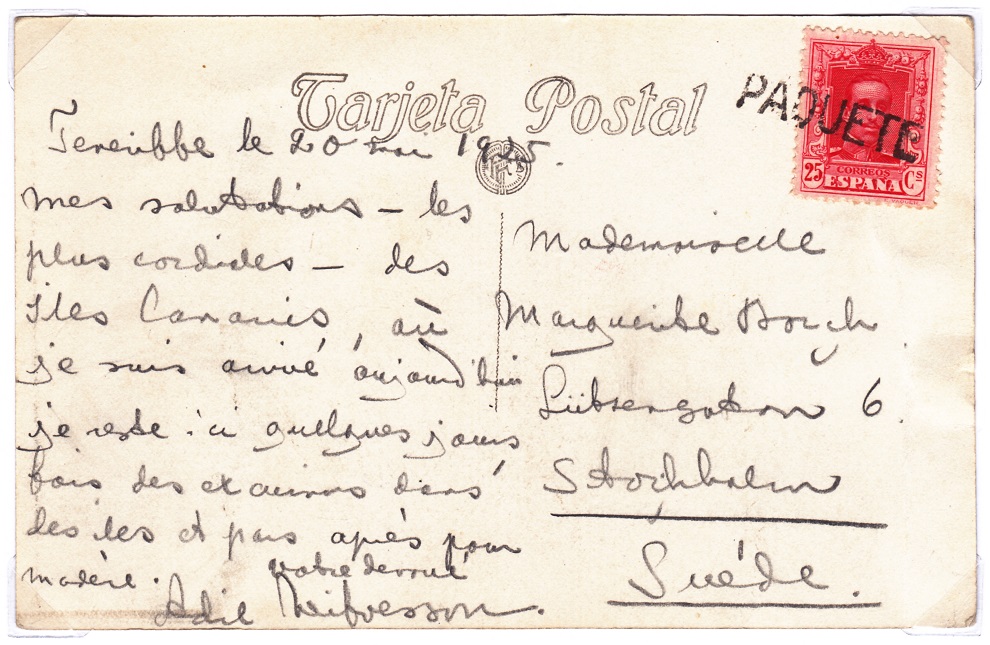 Tarjeta Postal
PAQUETE
25 CORREOS Cs
ESPAÑA
Teneriffe le 20 mai 1925.
mes salutations – les
plus cordiales – des
Iles Canaries, où
je suis arrivé aujourd'hui
je reste ici quelques jours
fais des excursions dans
les iles et pars après pour
madère. votre dévoué
Mademoiselle
Marguerite
6
Stockholm
Suéde.